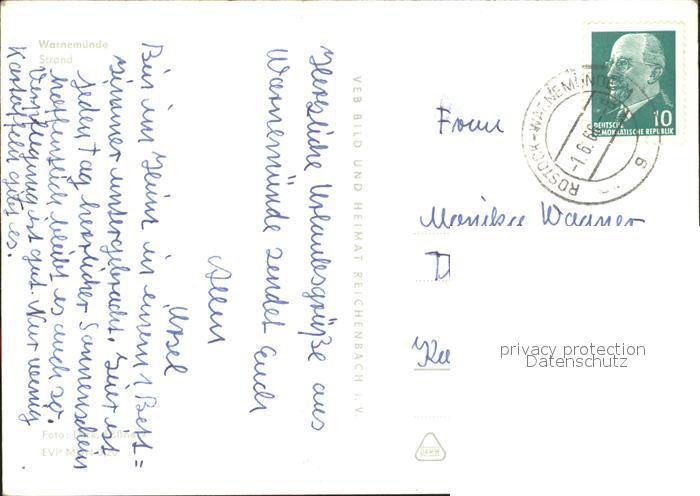 Warnemünde
Strand
Herzliche Urlaubsgrüße aus
Warnemünde sendet Euch
Allen
Ursel
Bin im Heim in einem 1 Bett=
zimmer untergebracht. Hier ist
jeden Tag herrlicher Sonnenschein
hoffentlich bleibt es auch so.
Verpflegung ist gut. Nur wenig
Kartoffeln gibt es.
Foto:
EVP M
VEB BILD UND HEIMAT REICHENBACH i. V.
Frau
Monika Wagner
ROSTOCK-WARNEMÜNDE 1
-1.6.6
g
10
DEUTSCHE
DEMOKRATISCHE REPUBLIK
privacy protection
Datenschutz